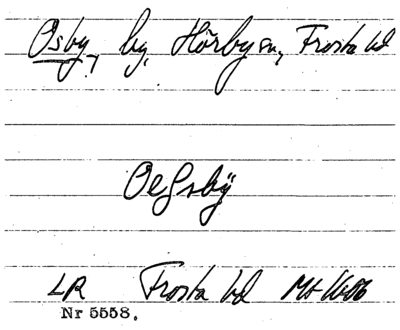 Osby, by, Hörby sn, Frosta hd
Oelsbÿ
LR Frosta hd Mt
Nr 5558.